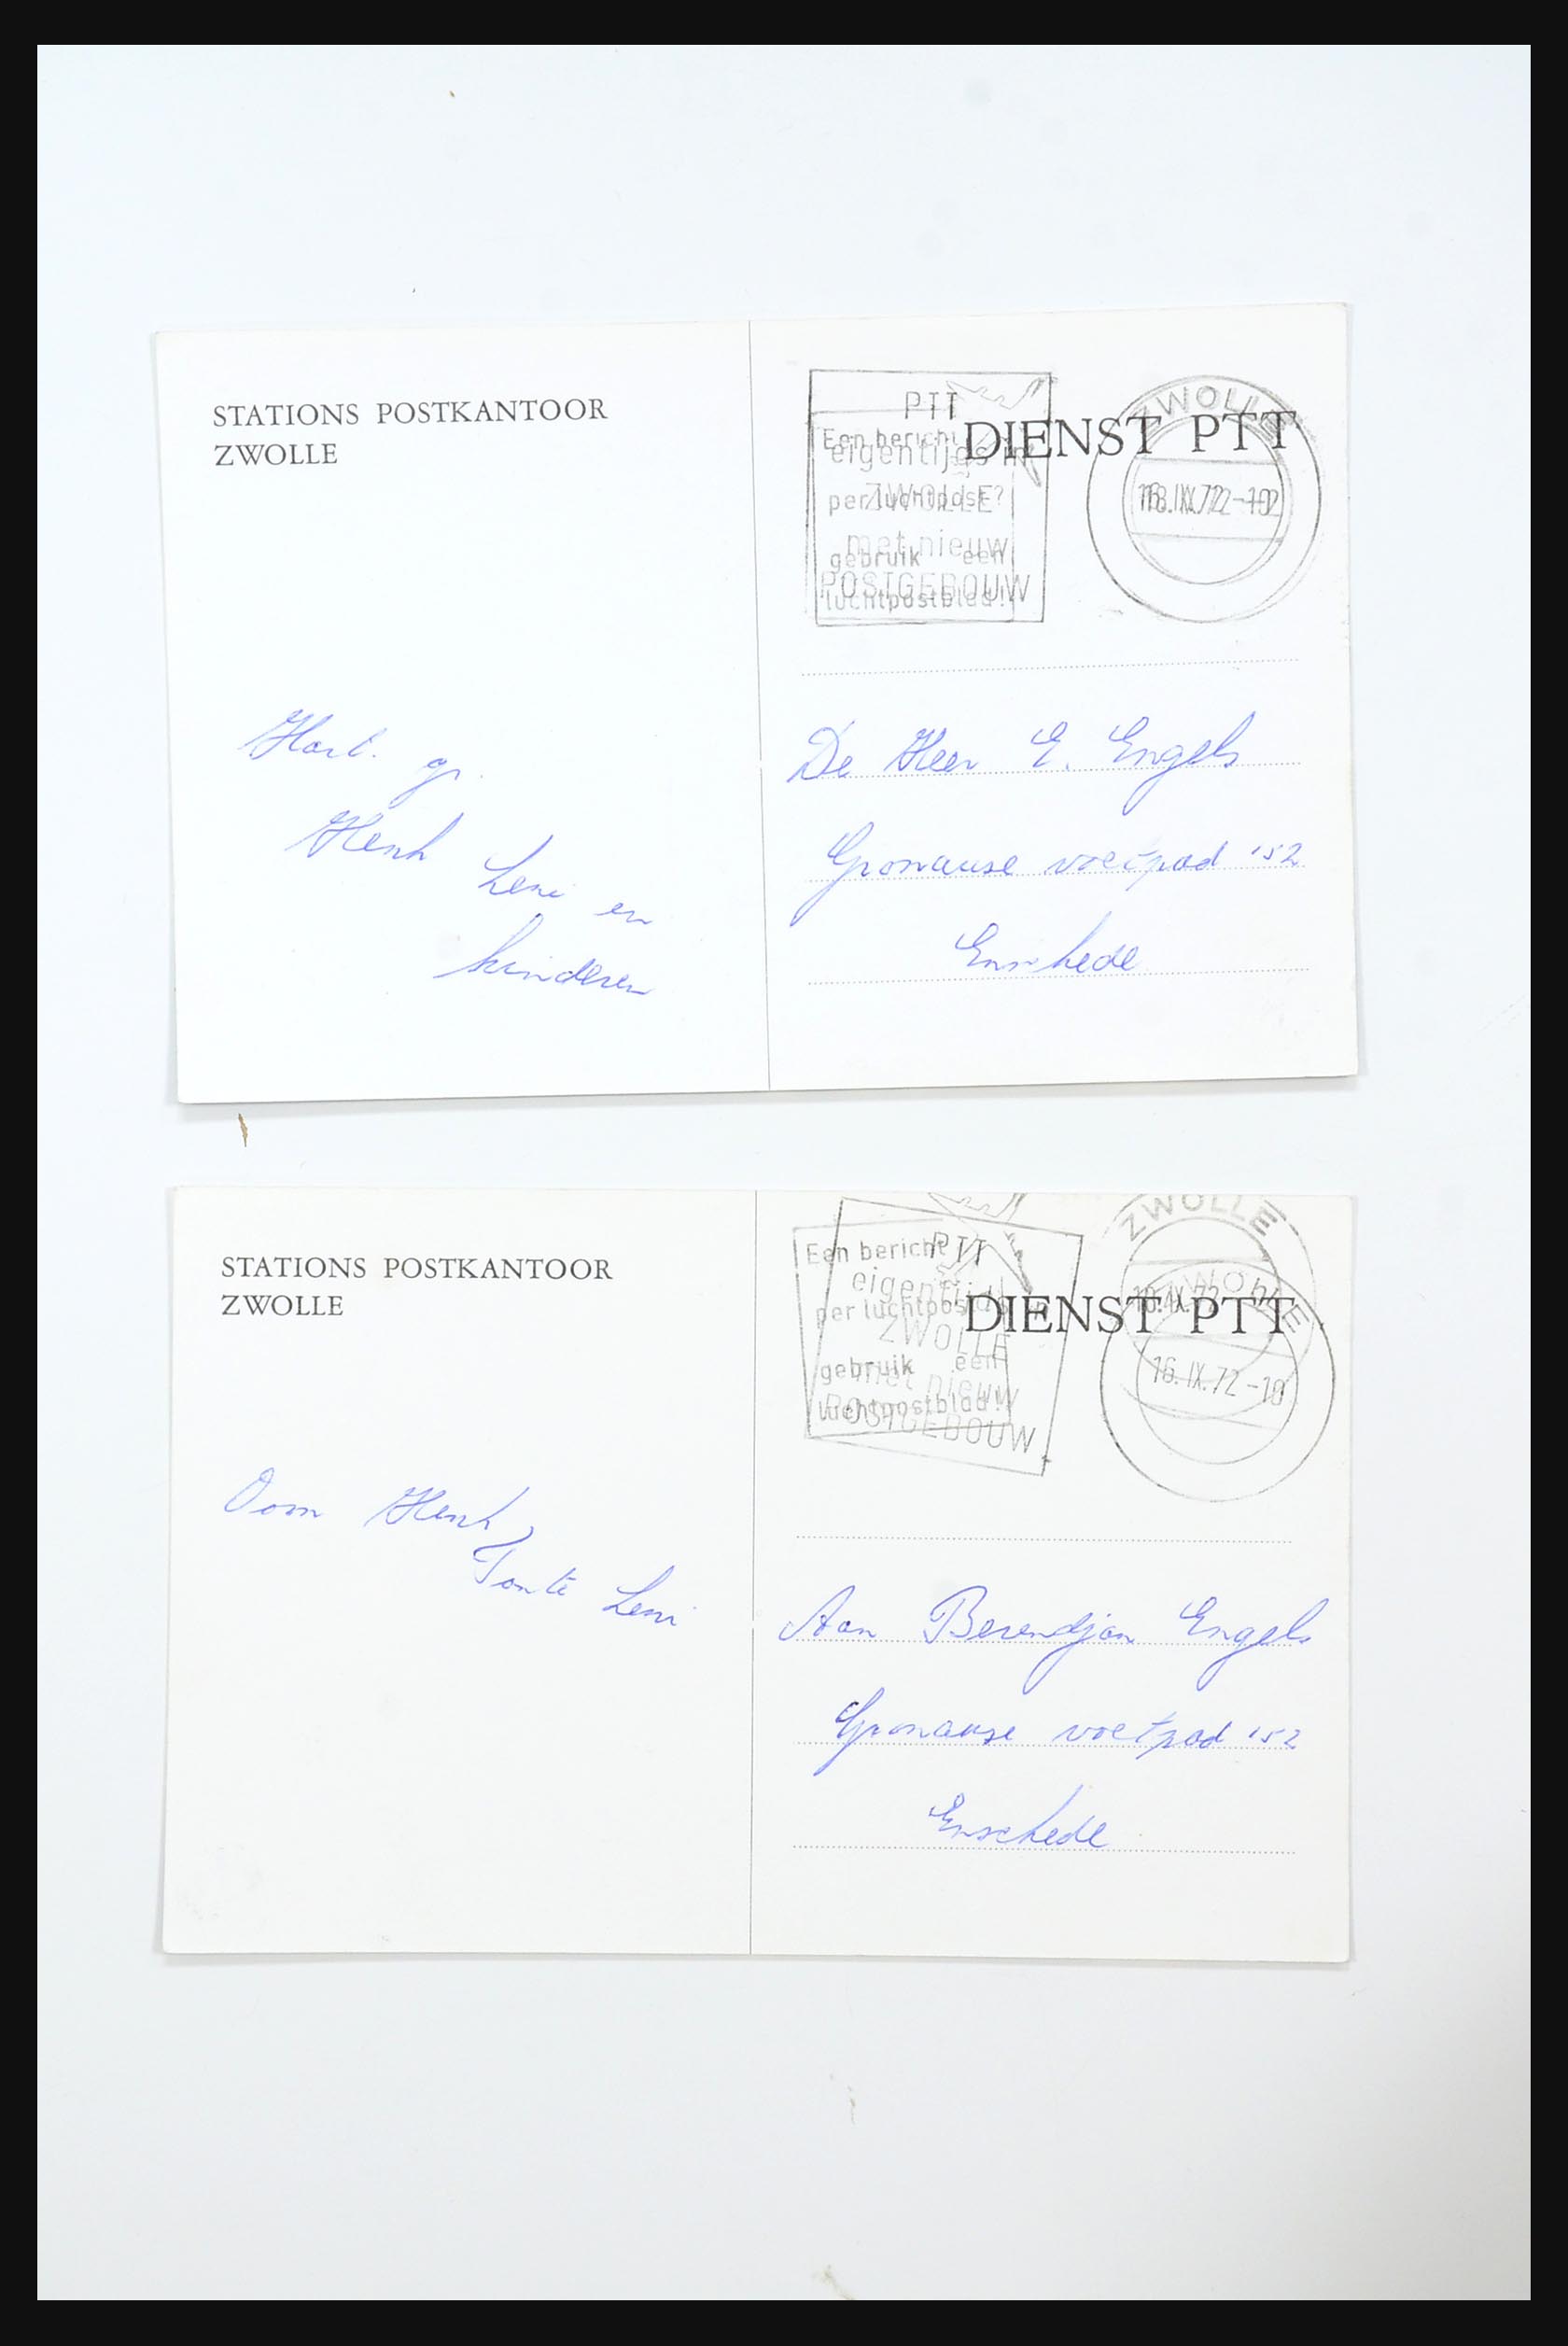 STATIONS POSTKANTOOR
ZWOLLE
Hart. gr.
Henk
Leni en
kinderen
PTT
Een bericht
eigentijds in
ZWOLLE
per luchtpost?
met nieuw
gebruik een
POSTGEBOUW
luchtpostblad!
DIENST PTT
ZWOLLE
De Heer E. Engels
Gronause voetpad 152
Enschede
STATIONS POSTKANTOOR
ZWOLLE
Oom Henk,
Tante Leni
Een bericht
PTT
eigentijds
per luchtpost
ZWOLLE
gebruik een
met nieuw
luchtpostblad!
POSTGEBOUW
DIENST PTT
ZWOLLE
ZWOLLE
16.IX.72-10
Aan Berendjan Engels
Gronause voetpad 152
Enschede